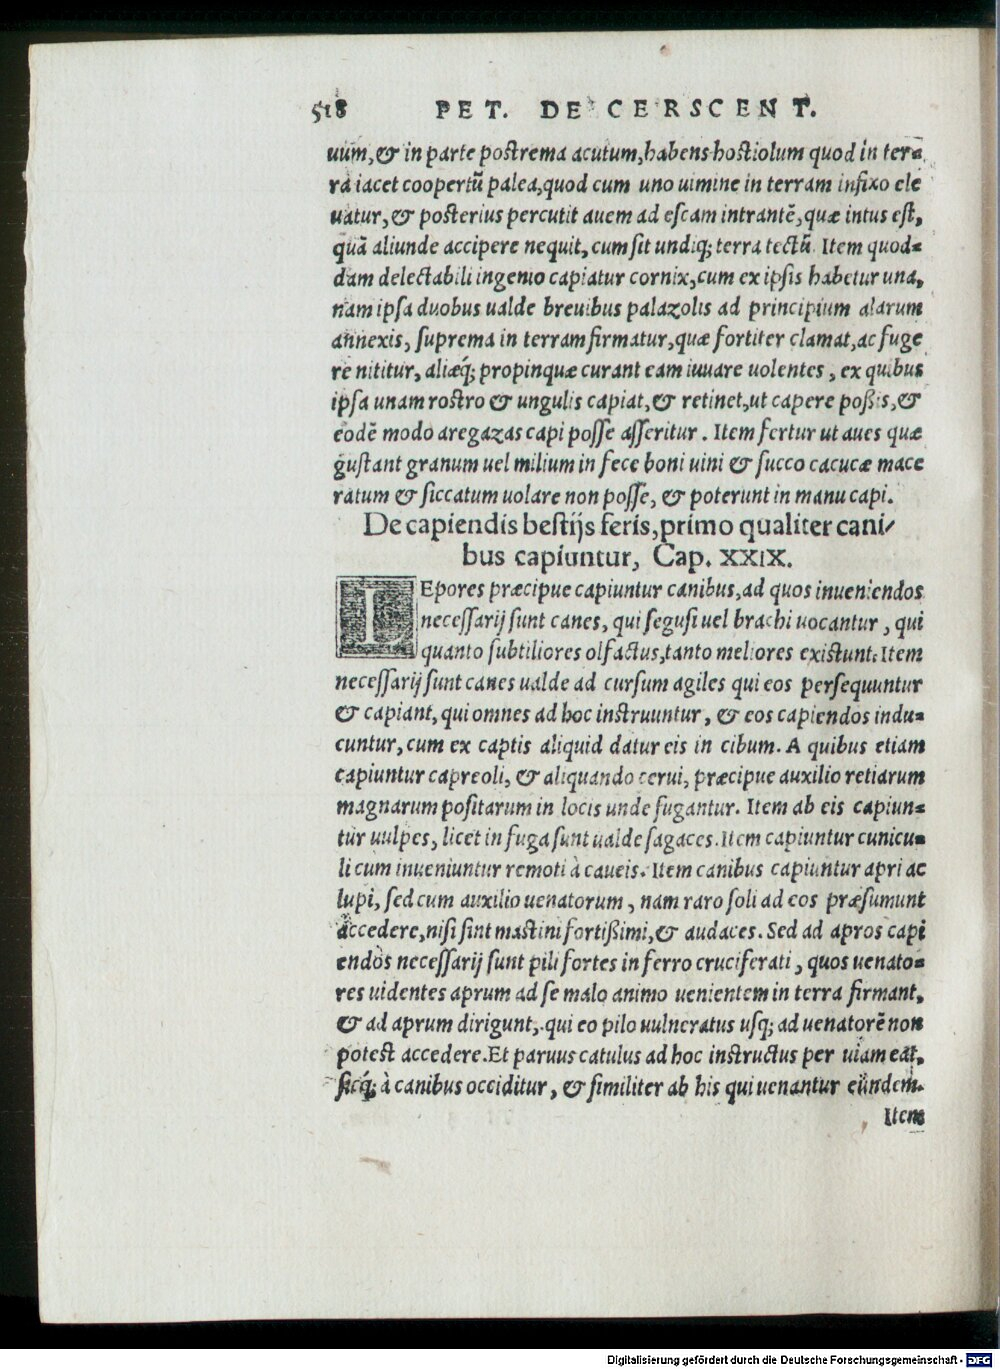 518 PET. DE CERSCENT.
uum, & in parte postrema acutum, habens hostiolum quod in ter=
ra iacet coopertũ palea, quod cum uno uimine in terram infixo ele
uatur, & posterius percutit auem ad escam intrantẽ, quæ intus est,
quã aliunde accipere nequit, cum sit undiq; terra tectũ. Item quod=
dam delectabili ingenio capiatur cornix, cum ex ipsis habetur una,
nam ipsa duobus ualde breuibus palazolis ad principium alarum
annexis, suprema in terram firmatur, quæ fortiter clamat, ac fuge
re nititur, aliæq́; propinquæ curant eam iuuare uolentes, ex quibus
ipsa unam rostro & ungulis capiat, & retinet, ut capere poßis, &
eodẽ modo aregazas capi posse asseritur. Item fertur ut aues quæ
gustant granum uel milium in fece boni uini & succo cacucæ mace
ratum & siccatum uolare non posse, & poterunt in manu capi.
De capiendis bestijs feris, primo qualiter cani/
bus capiuntur, Cap. XXIX.
LEpores præcipue capiuntur canibus, ad quos inueniendos
necessarij sunt canes, qui segusi uel brachi uocantur, qui
quanto subtiliores olfactus, tanto meliores existunt: Item
necessarij sunt canes ualde ad cursum agiles qui eos persequuntur
& capiant, qui omnes ad hoc instruuntur, & eos capiendos indu=
cuntur, cum ex captis aliquid datur eis in cibum. A quibus etiam
capiuntur capreoli, & aliquando cerui, præcipue auxilio retiarum
magnarum positarum in locis unde fugantur. Item ab eis capiun=
tur uulpes, licet in fuga sunt ualde sagaces. Item capiuntur cunicu=
li cum inueniuntur remoti à caueis. Item canibus capiuntur apri ac
lupi, sed cum auxilio uenatorum, nam raro soli ad eos præsumunt
accedere, nisi sint mastini fortißimi, & audaces. Sed ad apros capi
endos necessarij sunt pili fortes in ferro cruciferati, quos uenato=
res uidentes aprum ad se malo animo uenientem in terra firmant,
& ad aprum dirigunt, qui eo pilo uulneratus usq; ad uenatorẽ non
potest accedere. Et paruus catulus ad hoc instructus per uiam eat,
sicq́; à canibus occiditur, & similiter ab his qui uenantur eundem.
Item
Digitalisierung gefördert durch die Deutsche Forschungsgemeinschaft - DFG